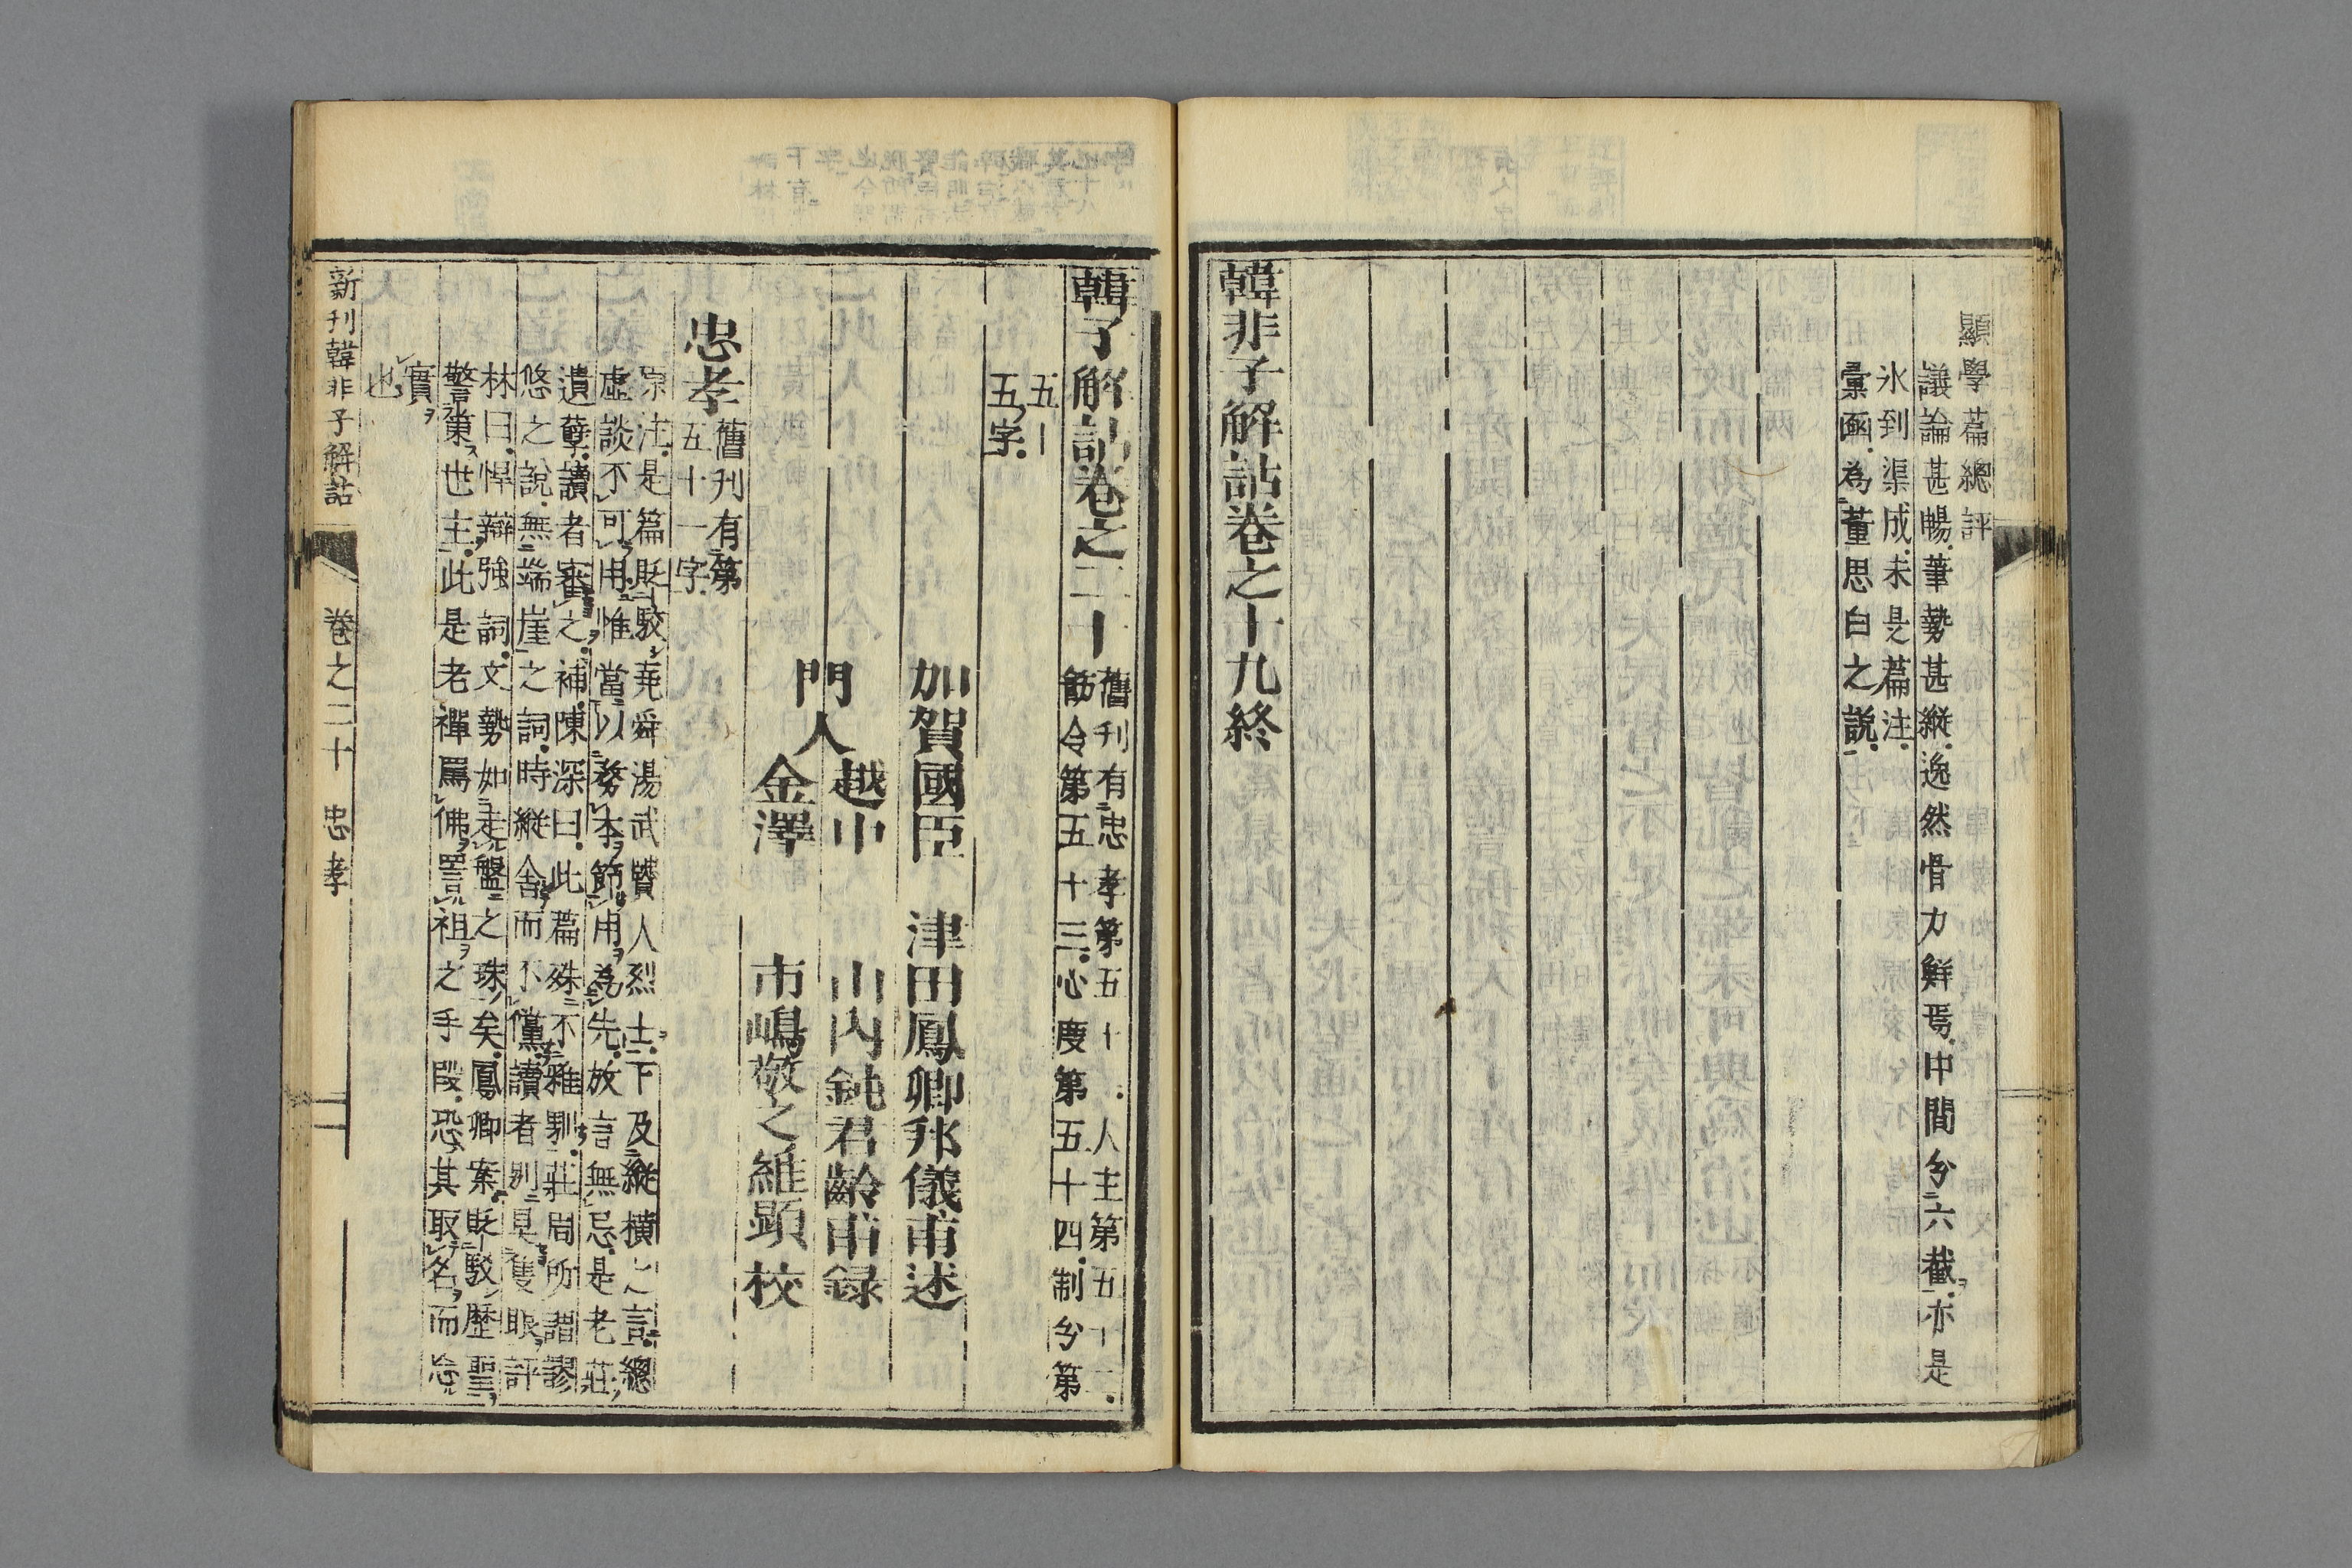 顯學篇總評
議論甚暢筆勢甚縱逸然骨力鮮焉中間分六截亦是
氷到渠成未是篇注
彙函為董思白之説
韓非子解詁卷之十九終
韓子解詁卷之二十
舊刊有忠孝第五十一人主第五十二
飭令第五十三心度第五十四制分第
五十
五字
加賀國臣 津田鳳卿邦儀甫述
門人
越中 山內鈍君齡甫録
金澤 市嶋敬之維顕校
忠孝
舊刊有第
五十一字
宗注是篇貶駁堯舜湯武賢人烈士下及縱橫之言總
虛談不可用惟當以務本節用為先放言無忌是老莊
遺孽讀者審之補陳深曰此篇殊不雅馴莊周所謂謬
悠之說無端崖之詞時縱舍而不儻讀者別具隻眼評
林曰悍辯強詞文勢如走盤之珠矣鳳卿案貶駁歷聖
警策世主此是老禪罵佛詈祖之手段恐其取名而忘
實
也
新刊韓非子解詁 卷之二十 忠孝